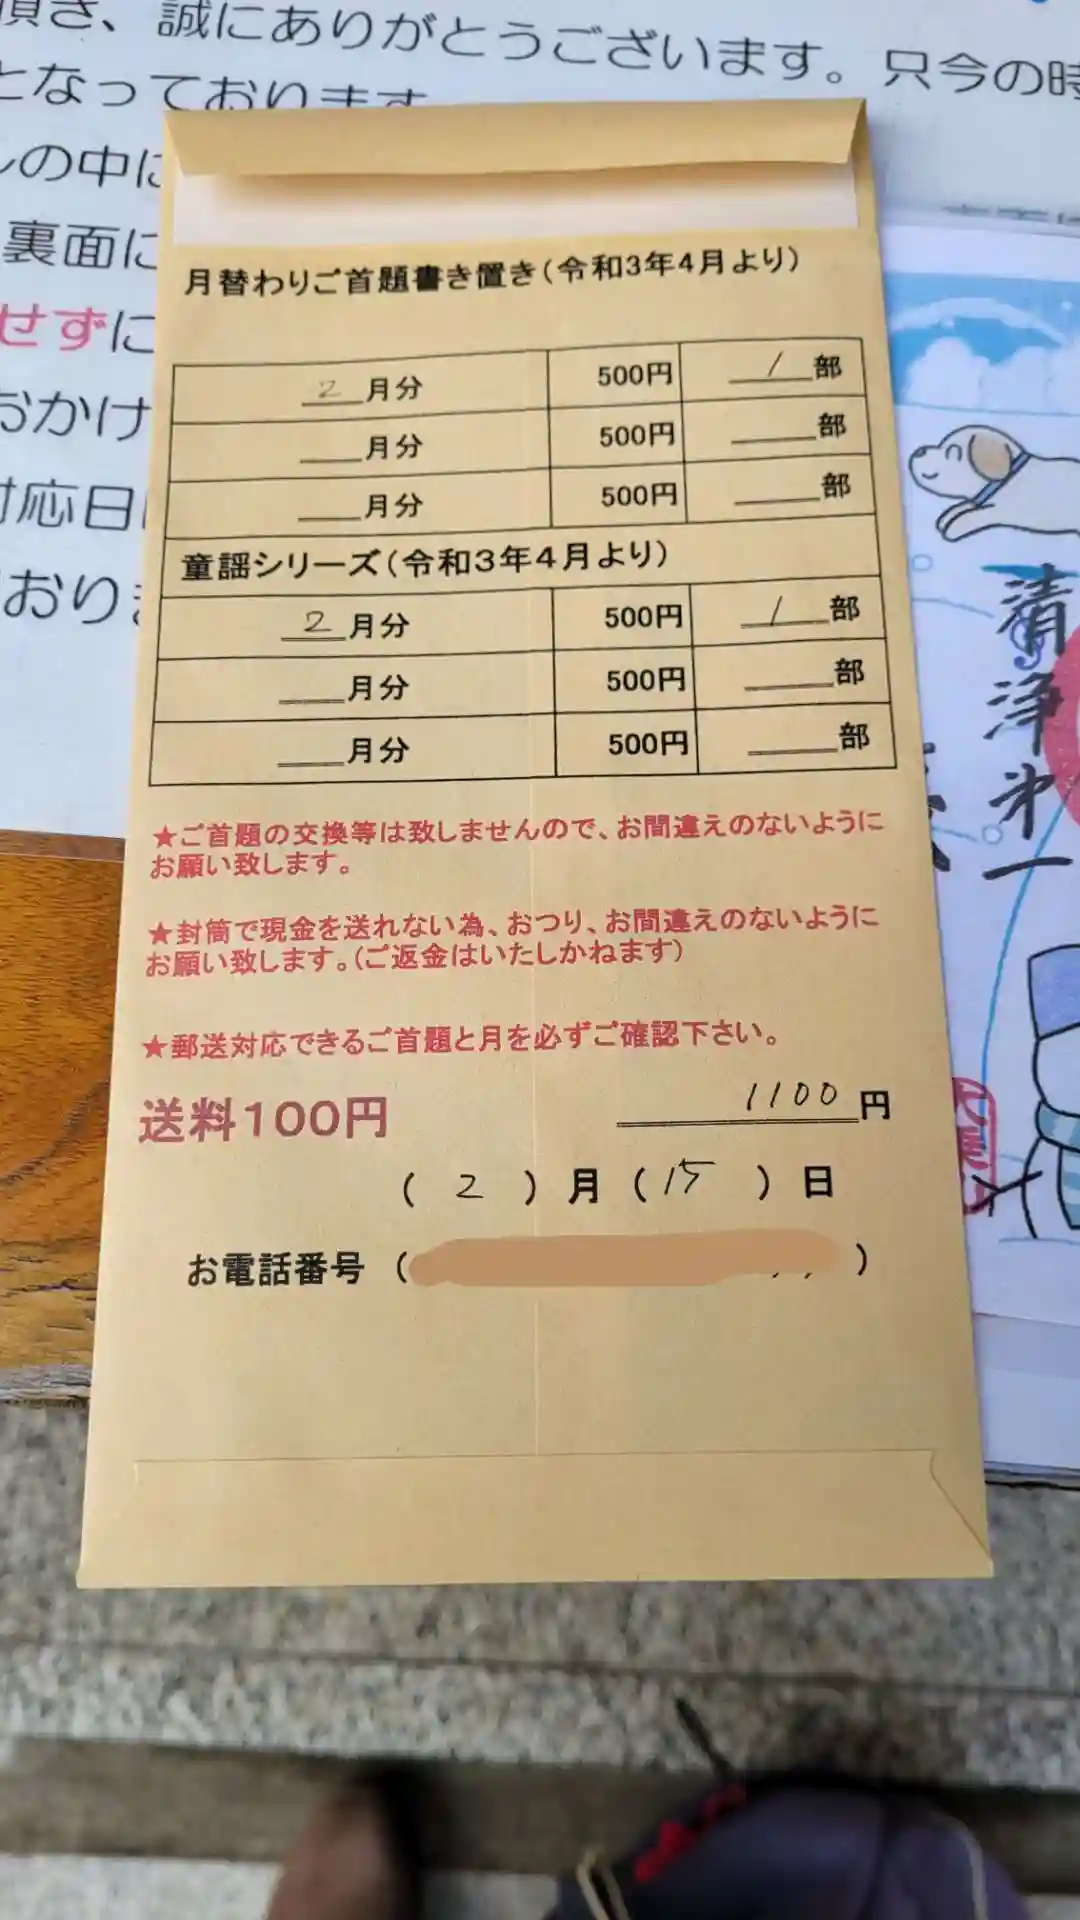 頂き、誠にありがとうございます。只今の時
となっております
ルの中に
裏面に
せずに
おかけ
対応日
おりま
月替わりご首題書き置き(令和3年4月より)
2月分 500円 1部
月分 500円 部
月分 500円 部
童謡シリーズ(令和3年4月より)
2月分 500円 1部
月分 500円 部
月分 500円 部
★ご首題の交換等は致しませんので、お間違えのないように
お願い致します。
★封筒で現金を送れない為、おつり、お間違えのないように
お願い致します。(ご返金はいたしかねます)
★郵送対応できるご首題と月を必ずご確認下さい。
送料100円 1100円
(2)月(15)日
お電話番号( )
清浄第一